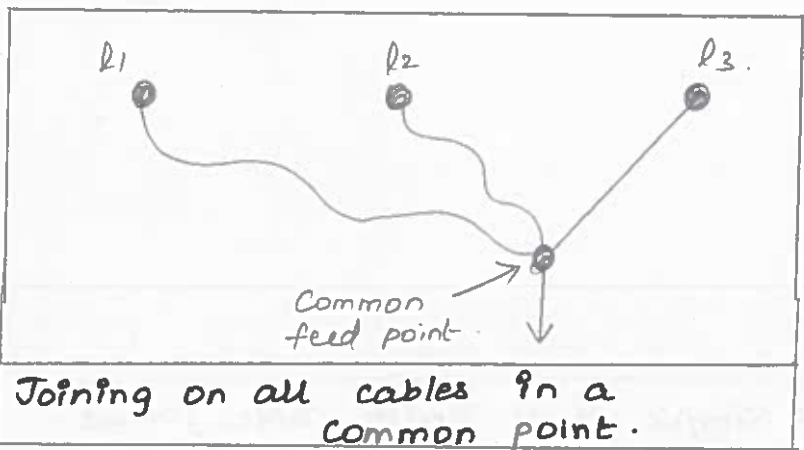 l1 l2 l3.
Common
feed point.
Joining on all cables in a
common point.